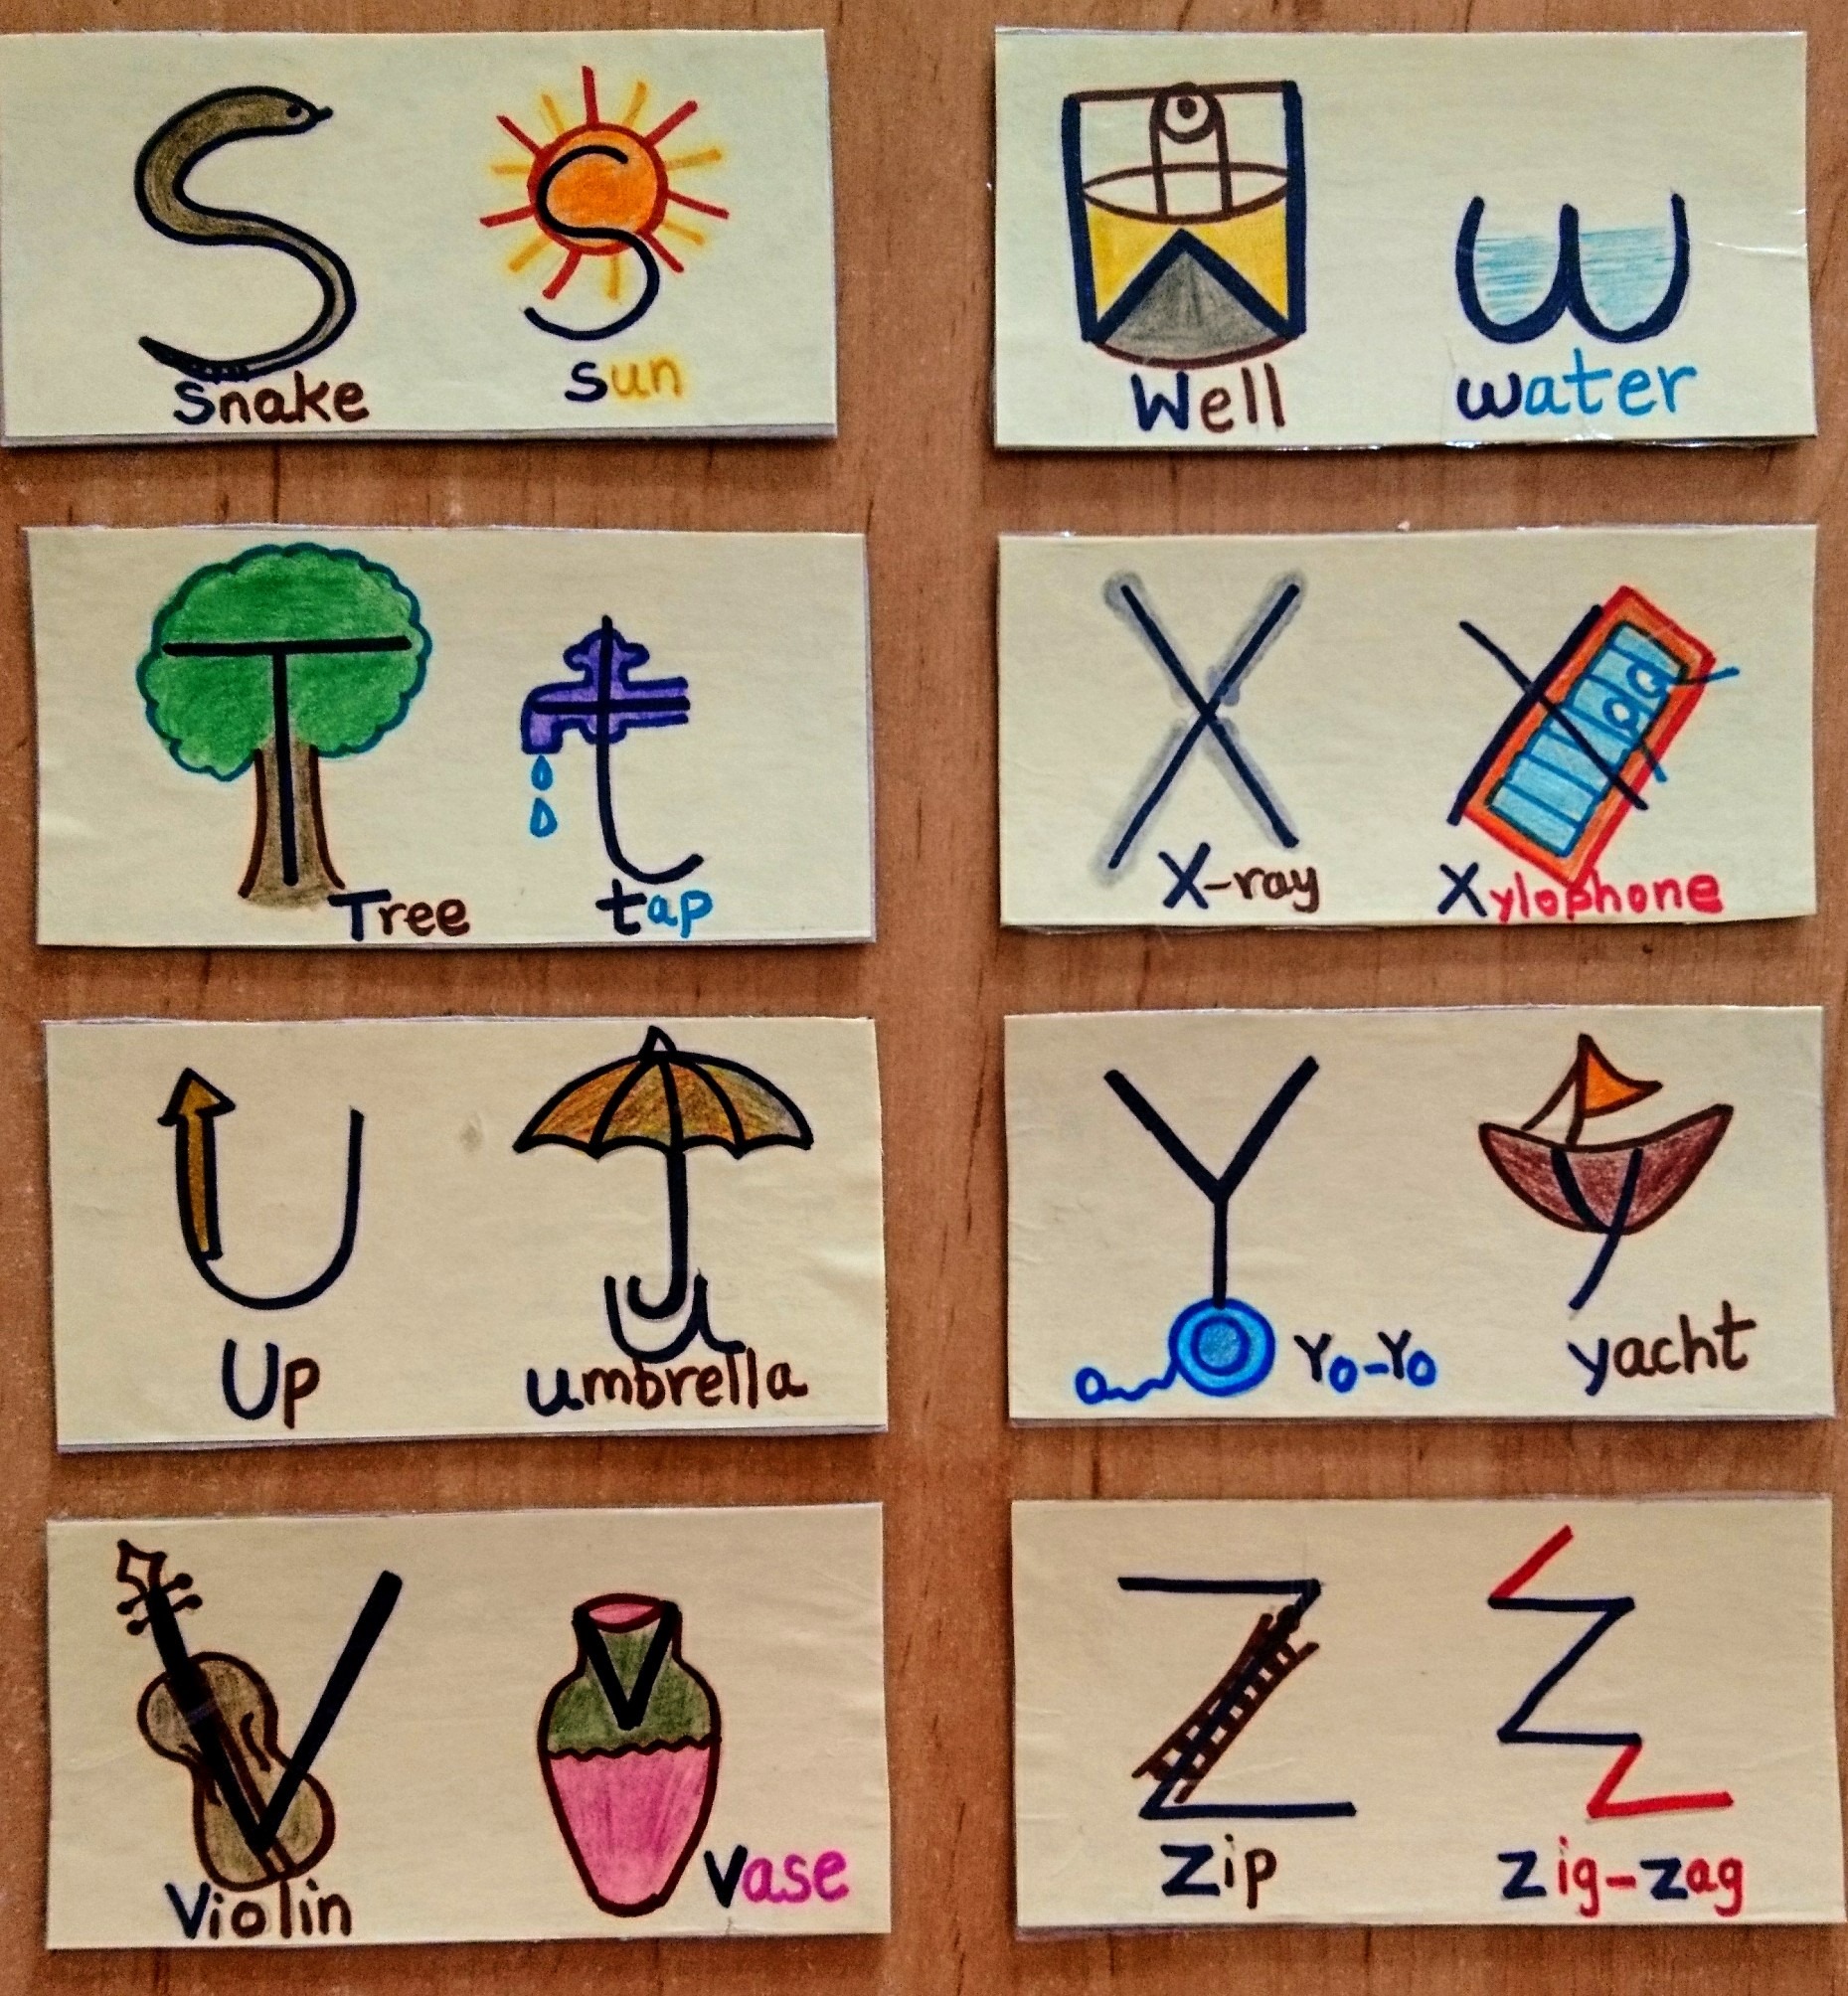 S S
Snake sun
T t
Tree tap
U u
Up umbrella
V V
Violin Vase
W w
Well water
X X
X-ray Xylophone
Y y
Yo-Yo yacht
Z Z
Zip Zig-zag